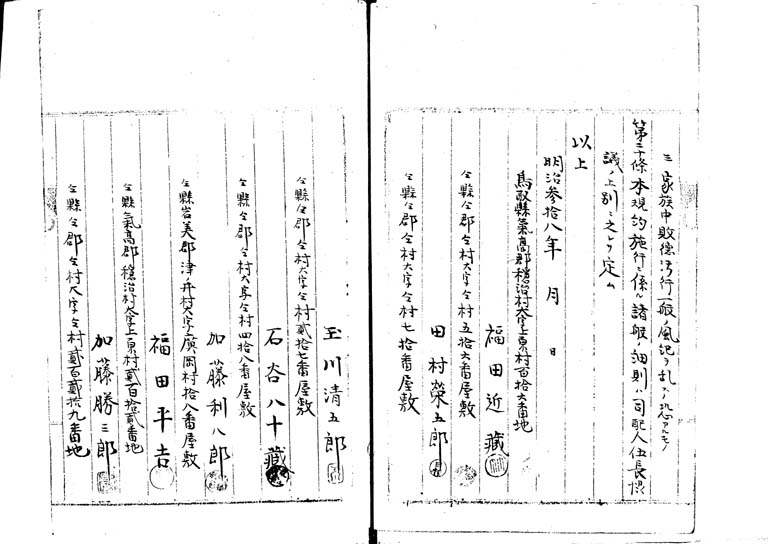 三 家族中敗徳汚行一般ノ風紀ヲ乱スノ恐アルモノ
第二十條本規約施行ニ係ル諸般ノ細則ハ司配人伍長協
議ノ上別ニ之レヲ定ム
以上
明治参拾八年 月 日
鳥取縣氣高郡穏治村大字上原村百拾六番地
福田近藏
仝縣仝郡仝村大字仝村五拾六番屋敷
田村榮五郎
仝縣仝郡仝村大字仝村七拾番屋敷
玉川清五郎
仝縣仝郡仝村大字仝村貳拾七番屋敷
石谷八十藏
仝縣仝郡仝村大字仝村四拾八番屋敷
加藤利八郎
仝縣岩美郡津ノ井村大字廣岡村拾八番屋敷
福田平吉
仝縣氣高郡穏治村大字上原村貳百拾貳番地
加藤勝三郎
仝縣仝郡仝村大字仝村貳百貳拾九番地